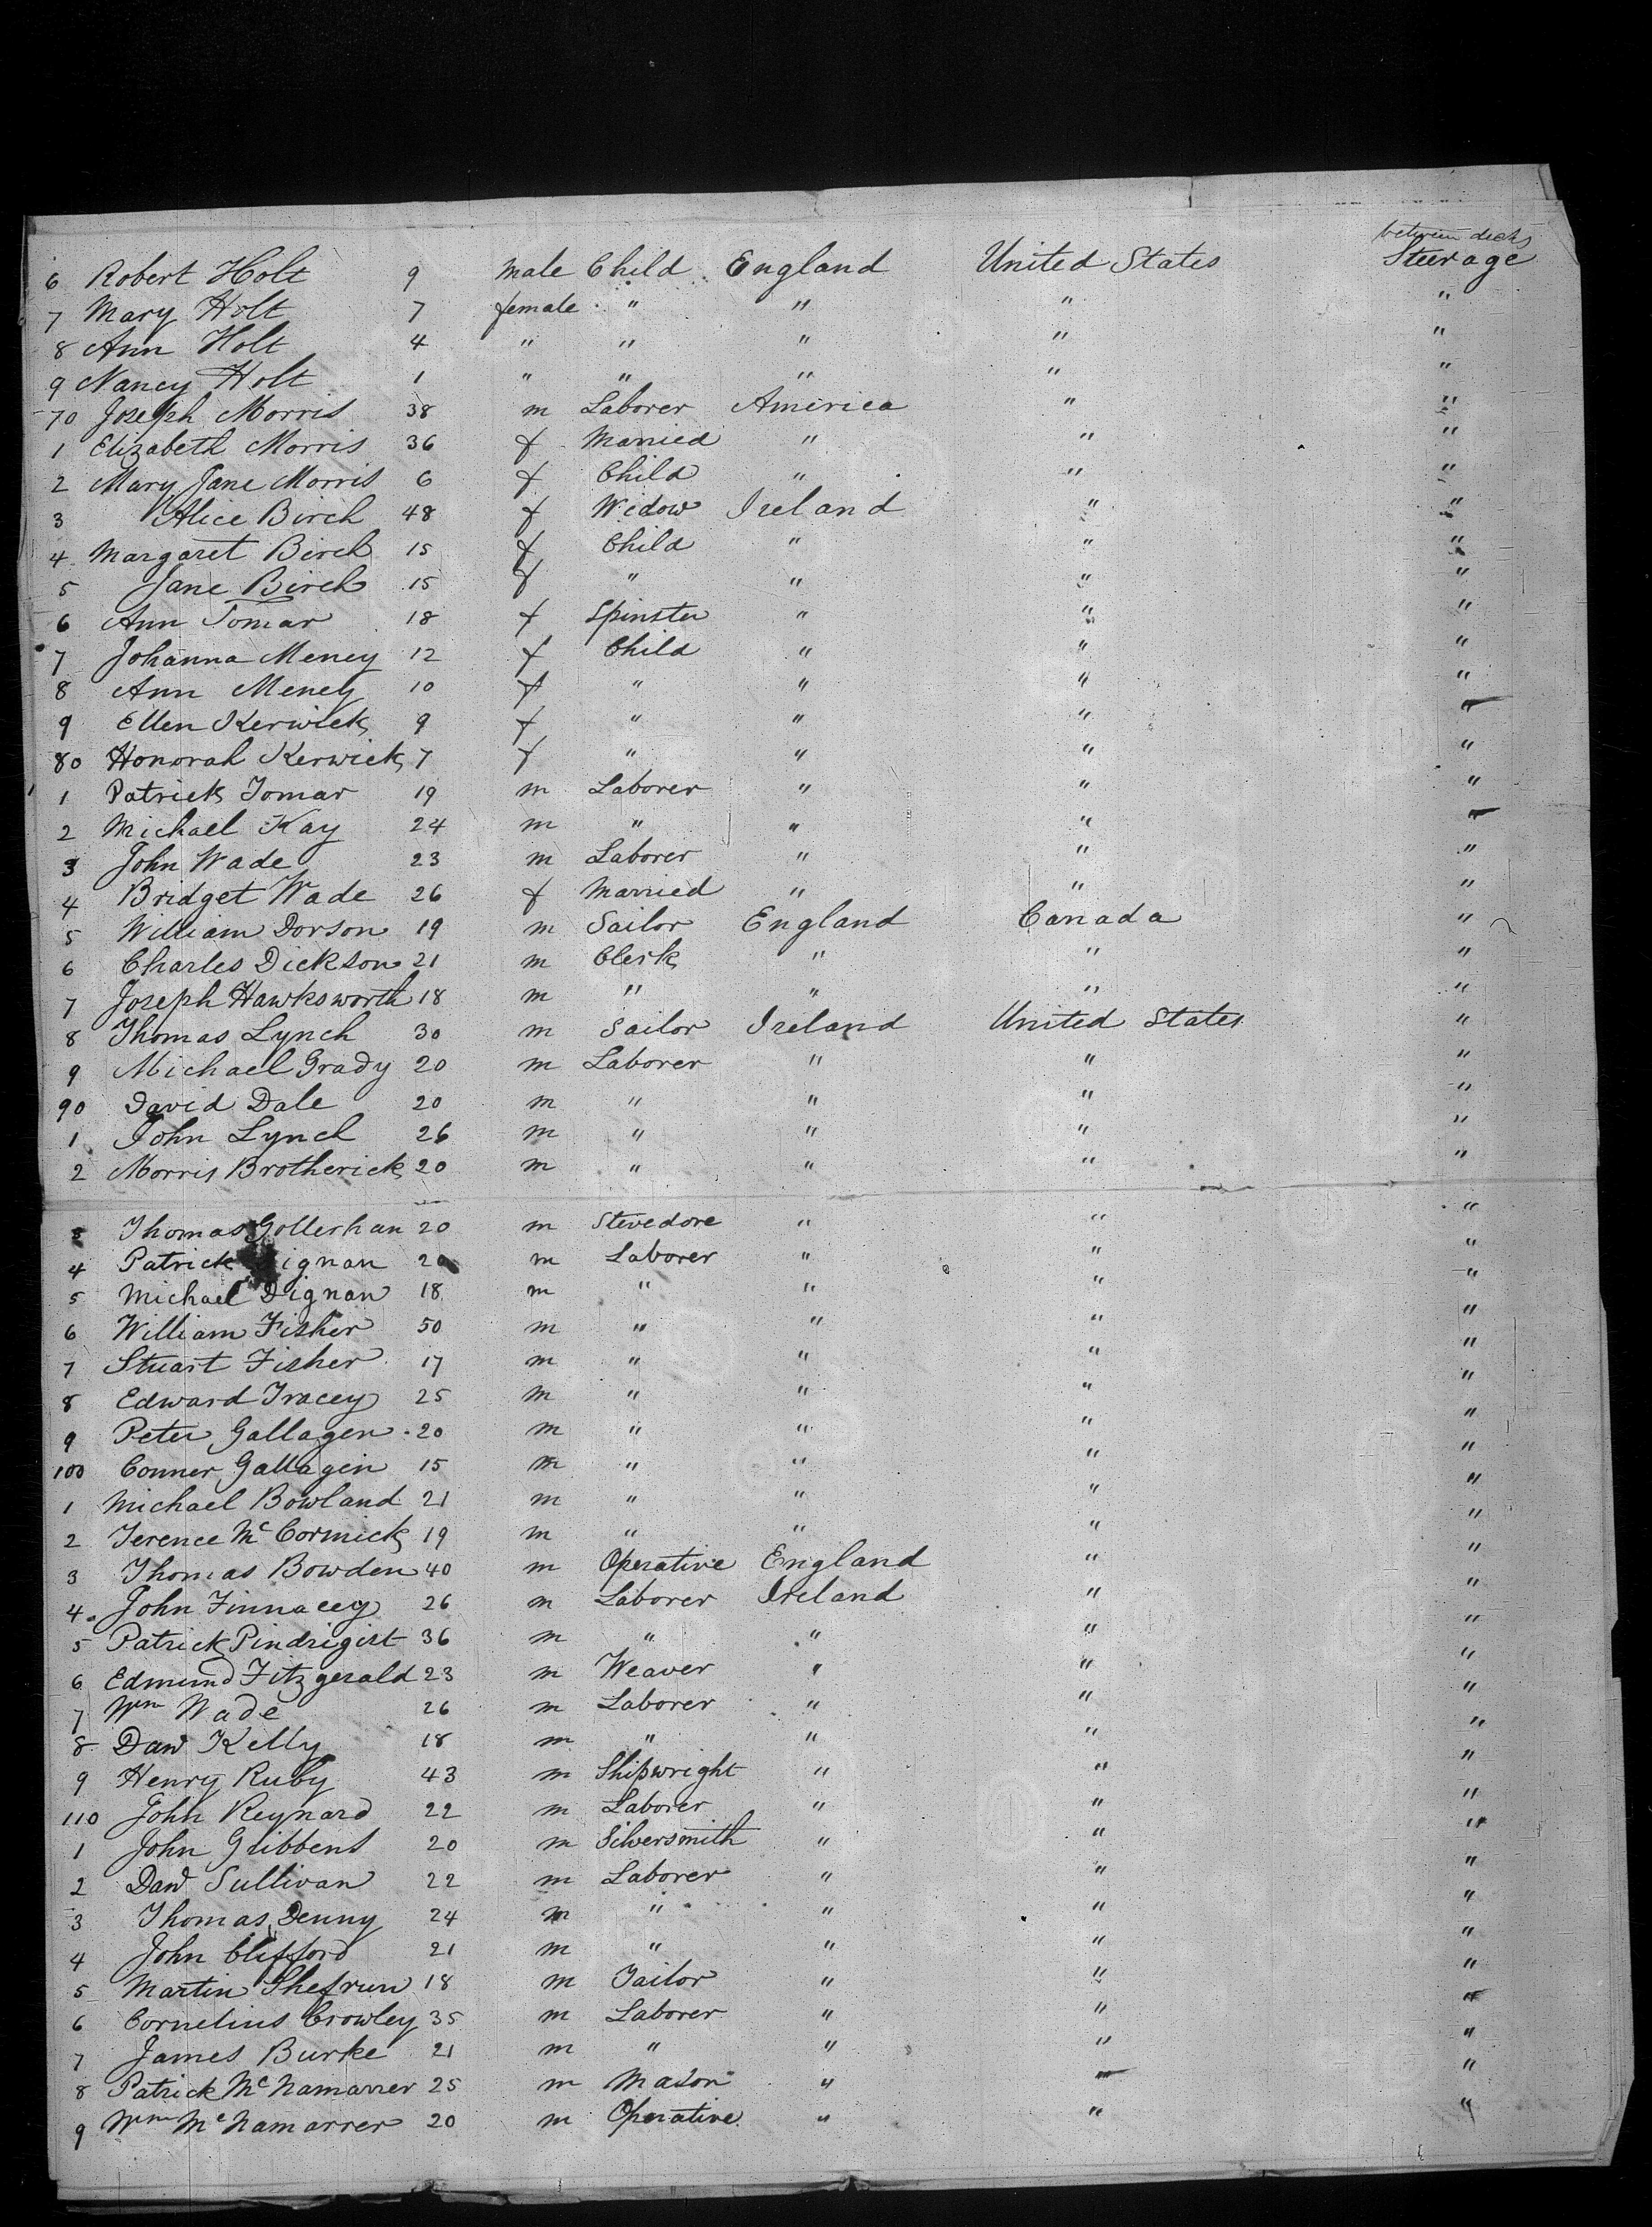 between decks
6 Robert Holt 9 male Child England United States Steerage
7 Mary Holt 7 female " " " "
8 Ann Holt 4 " " " " "
9 Nancy Holt 1 " " " " "
70 Joseph Morris 38 m Laborer America " "
1 Elizabeth Morris 36 f Married " " "
2 Mary Jane Morris 6 f Child " " "
3 Alice Birch 48 f Widow Ireland " "
4 Margaret Birch 15 f Child " " "
5 Jane Birch 15 f " " " "
6 Ann Tomar 18 f Spinster " " "
7 Johanna Meney 12 f Child " " "
8 Ann Meney 10 f " " " "
9 Ellen Kerwick 9 f " " " "
80 Honorah Kerwick 7 f " " " "
1 Patrick Tomar 19 m Laborer " " "
2 Michael Kay 24 m " " " "
3 John Wade 23 m Laborer " " "
4 Bridget Wade 26 f Married " " "
5 William Dorson 19 m Sailor England Canada "
6 Charles Dickson 21 m Clerk " " "
7 Joseph Hawksworth 18 m " " " "
8 Thomas Lynch 30 m Sailor Ireland United States "
9 Michael Grady 20 m Laborer " " "
90 David Dale 20 m " " " "
1 John Lynch 26 m " " " "
2 Morris Brotherick 20 m " " " "
3 Thomas Gollerhan 20 m Stevedore " " "
4 Patrick 20 m Laborer " " "
5 Michael Dignan 18 m " " " "
6 William Fisher 50 m " " " "
7 Stuart Fisher 17 m " " " "
8 Edward Tracey 25 m " " " "
9 Peter Gallagen 20 m " " " "
100 Conner Gallagin 15 m " " " "
1 Michael Bowland 21 m " " " "
2 Terence McCormick 19 m " " " "
3 Thomas Bowden 40 m Operative England " "
4 John Finnacey 26 m Laborer Ireland " "
5 Patrick Pindrigist 36 m " " " "
6 Edmund Fitzgerald 23 m Weaver " " "
7 Wm Wade 26 m Laborer " " "
8 Dan Kelly 18 m " " " "
9 Henry Ruby 43 m Shipwright " " "
110 John Reynard 22 m Laborer " " "
1 John Gribbens 20 m Silversmith " " "
2 Dan Sullivan 22 m Laborer " " "
3 Thomas Denny 24 m " " " "
4 John Clifford 21 m " " " "
5 Martin Shefrun 18 m Tailor " " "
6 Cornelius Crowley 35 m Laborer " " "
7 James Burke 21 m " " " "
8 Patrick McNamarrer 25 m Mason " " "
9 Wm McNamarrer 20 m Operative " " "